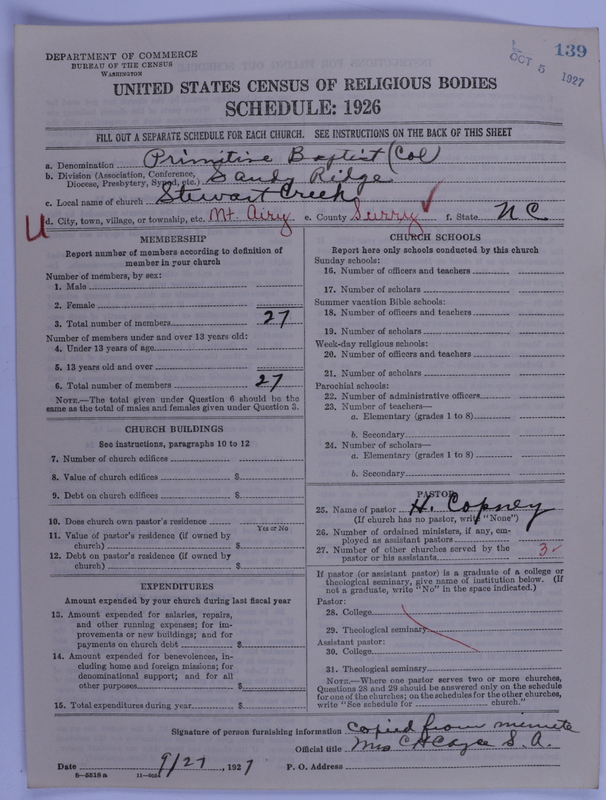 DEPARTMENT OF COMMERCE
BUREAU OF THE CENSUS
WASHINGTON
139
OCT 5 1927
UNITED STATES CENSUS OF RELIGIOUS BODIES
SCHEDULE: 1926
FILL OUT A SEPARATE SCHEDULE FOR EACH CHURCH. SEE INSTRUCTIONS ON THE BACK OF THIS SHEET
a. Denomination Primitive Baptist (Col)
b. Division (Association, Conference, Diocese, Presbytery, Synod, etc.) Sandy Ridge
c. Local name of church Stewart Creek
d. City, town, village, or township, etc. Mt. Airy e. County Surry f. State NC
MEMBERSHIP
Report number of members according to definition of
member in your church
Number of members, by sex:
1. Male
2. Female
3. Total number of members 27
Number of members under and over 13 years old:
4. Under 13 years of age
5. 13 years old and over
6. Total number of members 27
NOTE.—The total given under Question 6 should be the
same as the total of males and females given under Question 3.
CHURCH BUILDINGS
See instructions, paragraphs 10 to 12
7. Number of church edifices
8. Value of church edifices $
9. Debt on church edifices $
10. Does church own pastor's residence
Yes or No
11. Value of pastor's residence (if owned by
church) $
12. Debt on pastor's residence (if owned by
church) $
EXPENDITURES
Amount expended by your church during last fiscal year
13. Amount expended for salaries, repairs,
and other running expenses; for im-
provements or new buildings; and for
payments on church debt $
14. Amount expended for benevolences, in-
cluding home and foreign missions; for
denominational support; and for all
other purposes $
15. Total expenditures during year $
CHURCH SCHOOLS
Report here only schools conducted by this church
Sunday schools:
16. Number of officers and teachers
17. Number of scholars
Summer vacation Bible schools:
18. Number of officers and teachers
19. Number of scholars
Week-day religious schools:
20. Number of officers and teachers
21. Number of scholars
Parochial schools:
22. Number of administrative officers
23. Number of teachers—
a. Elementary (grades 1 to 8)
b. Secondary
24. Number of scholars—
a. Elementary (grades 1 to 8)
b. Secondary
PASTOR
25. Name of pastor H. Copney
(If church has no pastor, write "None")
26. Number of ordained ministers, if any, em-
ployed as assistant pastors
27. Number of other churches served by the
pastor or his assistants 3
If pastor (or assistant pastor) is a graduate of a college or
theological seminary, give name of institution below. (If
not a graduate, write "No" in the space indicated.)
Pastor:
28. College
29. Theological seminary
Assistant pastor:
30. College
31. Theological seminary
NOTE.—Where one pastor serves two or more churches,
Questions 28 and 29 should be answered only on the schedule
for one of the churches; on the schedules for the other churches,
write "See schedule for church."
Signature of person furnishing information copied from minute
Official title Mrs C H Cayce S. A.
Date 9/27, 1927 P. O. Address
8-5518a